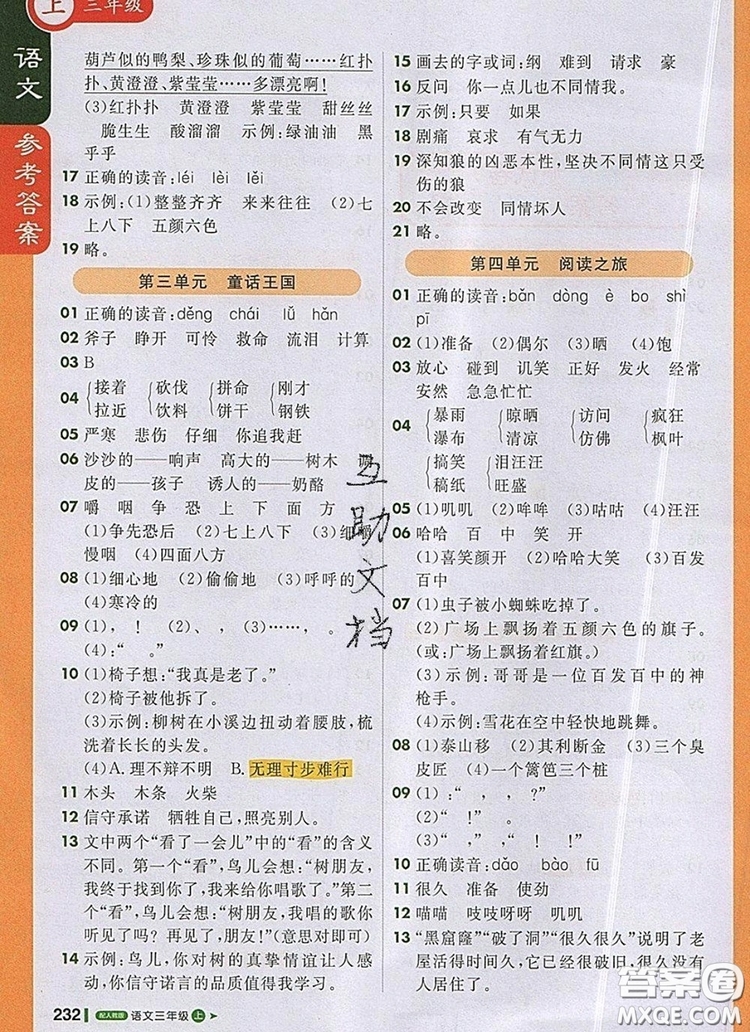 上 三年级
语文
参考答案
葫芦似的鸭梨、珍珠似的葡萄……红扑
扑、黄澄澄、紫莹莹……多漂亮啊!
(3)红扑扑 黄澄澄 紫莹莹 甜丝丝
脆生生 酸溜溜 示例:绿油油 黑
乎乎
17 正确的读音:léi lèi lěi
18 示例:(1)整整齐齐 来来往往 (2)七
上八下 五颜六色
19 略。
第三单元 童话王国
01 正确的读音:děng chái lǚ hǎn
02 斧子 睁开 可怜 救命 流泪 计算
03 B
04 接着 砍伐 拼命 刚才
拉近 饮料 饼干 钢铁
05 严寒 悲伤 仔细 你追我赶
06 沙沙的——响声 高大的——树木
皮的——孩子 诱人的——奶酪
07 嚼 咽 争 恐 上 下 面 方
(1)争先恐后 (2)七上八下 (3)细嚼
慢咽 (4)四面八方
08 (1)细心地 (2)偷偷地 (3)呼呼的
(4)寒冷的
09 (1), ! (2)、, (3)……,
(4):“ 。”
10 (1)椅子想:“我真是老了。”
(2)椅子被他拆了。
(3)示例:柳树在小溪边扭动着腰肢,梳
洗着长长的头发。
(4)A. 理不辩不明 B. 无理寸步难行
11 木头 木条 火柴
12 信守承诺 牺牲自己,照亮别人。
13 文中两个“看了一会儿”中的“看”的含义
不同。第一个“看”,鸟儿会想:“树朋友,
我终于找到你了,我来给你唱歌了。”第二
个“看”,鸟儿会想:“树朋友,我唱的歌你
听见了吗?再见了,朋友!”(意思对即可)
14 示例:鸟儿,你对树的真挚情谊让人感动,
你信守诺言的品质值得我学习。
232 配人教版 语文三年级 上
15 画去的字或词:纲 难到 请求 豪
16 反问 你一点儿也不同情我。
17 示例:只要 如果
18 剧痛 哀求 有气无力
19 深知狼的凶恶本性,坚决不同情这只受
伤的狼
20 不会改变 同情坏人
21 略。
第四单元 阅读之旅
01 正确的读音:bǎn dòng è bo shì
pī
02 (1)准备 (2)偶尔 (3)晒 (4)饱
03 放心 碰到 讥笑 正好 发火 经常
安然 急急忙忙
04 暴雨 晾晒 访问 疯狂
瀑布 清凉 仿佛 枫叶
搞笑 泪汪汪
稿纸 旺盛
05 (1)叽叽 (2)哞哞 (3)咕咕 (4)汪汪
06 哈哈 百 中 笑 开
(1)喜笑颜开 (2)哈哈大笑 (3)百发
百中
07 (1)虫子被小蜘蛛吃掉了。
(2)广场上飘扬着五颜六色的旗子。
(或:广场上飘扬着红旗。)
(3)示例:哥哥是一位百发百中的神
枪手。
(4)示例:雪花在空中轻快地跳舞。
08 (1)泰山移 (2)其利断金 (3)三个臭
皮匠 (4)一个篱笆三个桩
09 (1):“ , , 。”
(2)“ !” 。
(3):“ ? ! ?”
10 正确读音:dǎo bào fū
11 很久 准备 使劲
12 喵喵 吱吱呀呀 叽叽
13 “黑窟窿”“破了洞”“很久很久”说明了老
屋活得时间很久,已经很破旧,很久没有
人居住了。
互助文档
答案圈
MXQE.COM